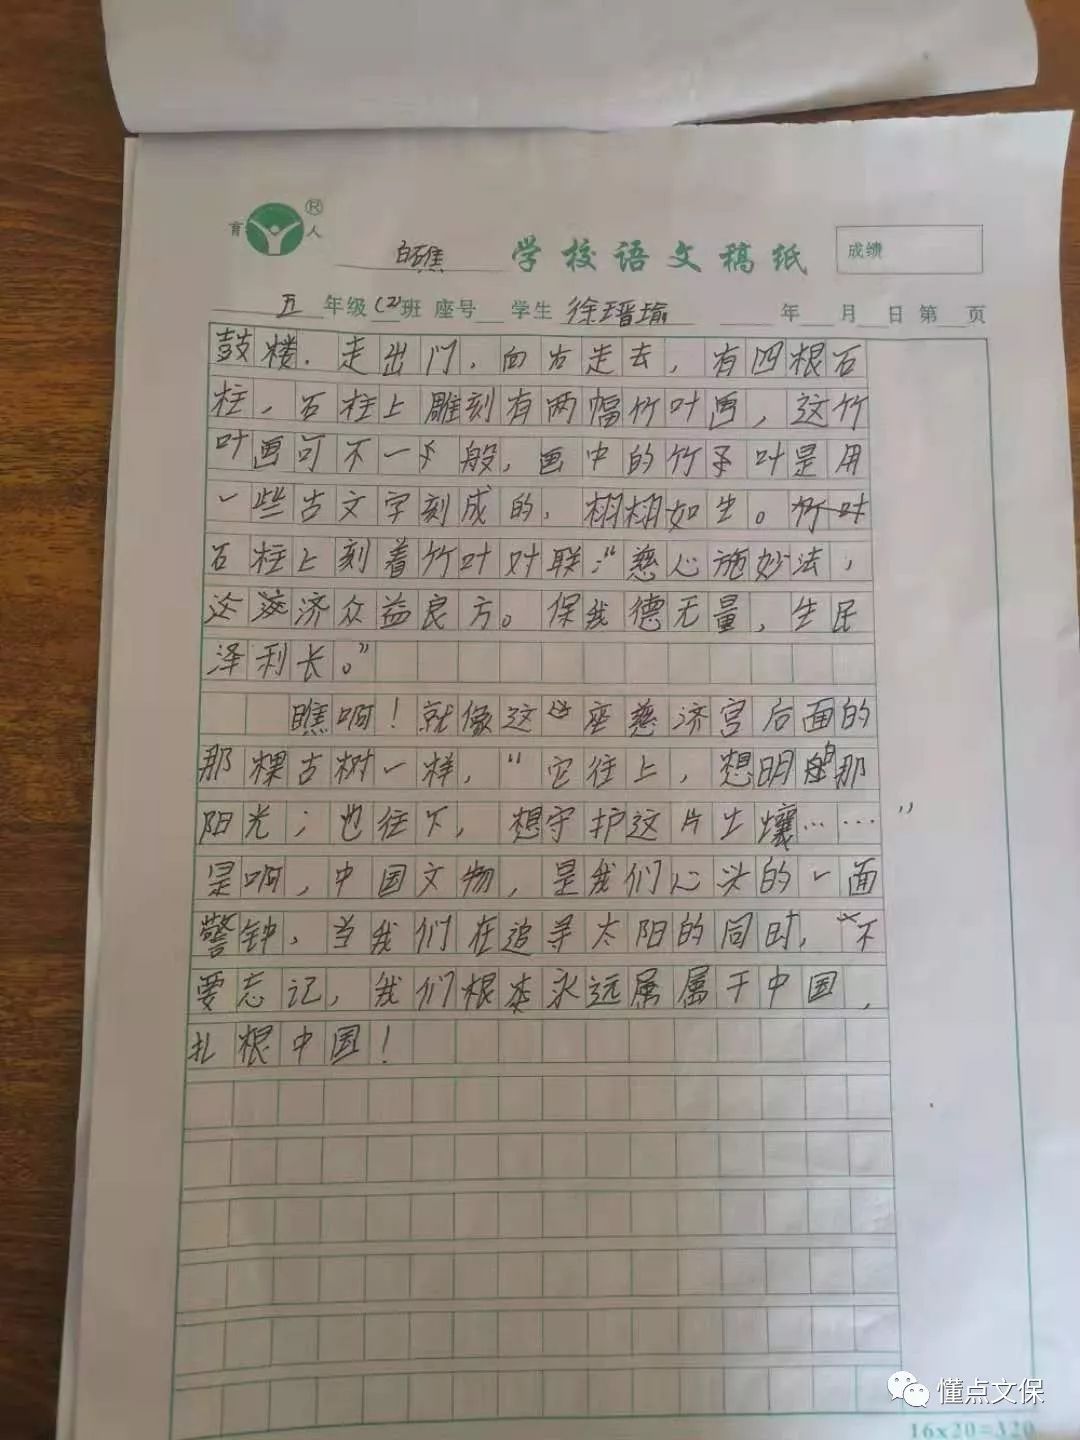 育 人 R
白礁 学校语文稿纸 成绩
五 年级 (2) 班 座号 学生 徐瑨瑜 年 月 日 第 页
鼓楼．走出门，向右走去，有四根石
柱，石柱上雕刻有两幅竹叶画，这竹
叶画可不一般，画中的竹叶是用
一些古文字刻成的，栩栩如生。
石柱上刻着竹叶对联：“慈心施妙法，
济众益良方。保我德无量，生民
泽利长。”
瞧啊！就像这座慈济宫后面的
那棵古树一样，“它往上，想明白那
阳光；也往下，想守护这片土壤……”
是啊，中国文物，是我们心头的一面
警钟，当我们在追寻太阳的同时，不
要忘记，我们根本永远属属于中国，
扎根中国！
懂点文保
16x20=320